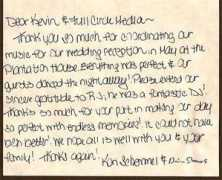 Dear Kevin & Full Circle Media~
Thank you so much for coordinating our
music for our wedding reception in May at the
Plantation House. Everything was perfect & our
guests danced the night away! Please extend our
sincere gratitude to R.J., he was a fantastic DJ!
Thanks so much, for your part in making our day
so perfect with endless memories! It could not have
been better! We hope all is well with you & your
family! Thanks again!